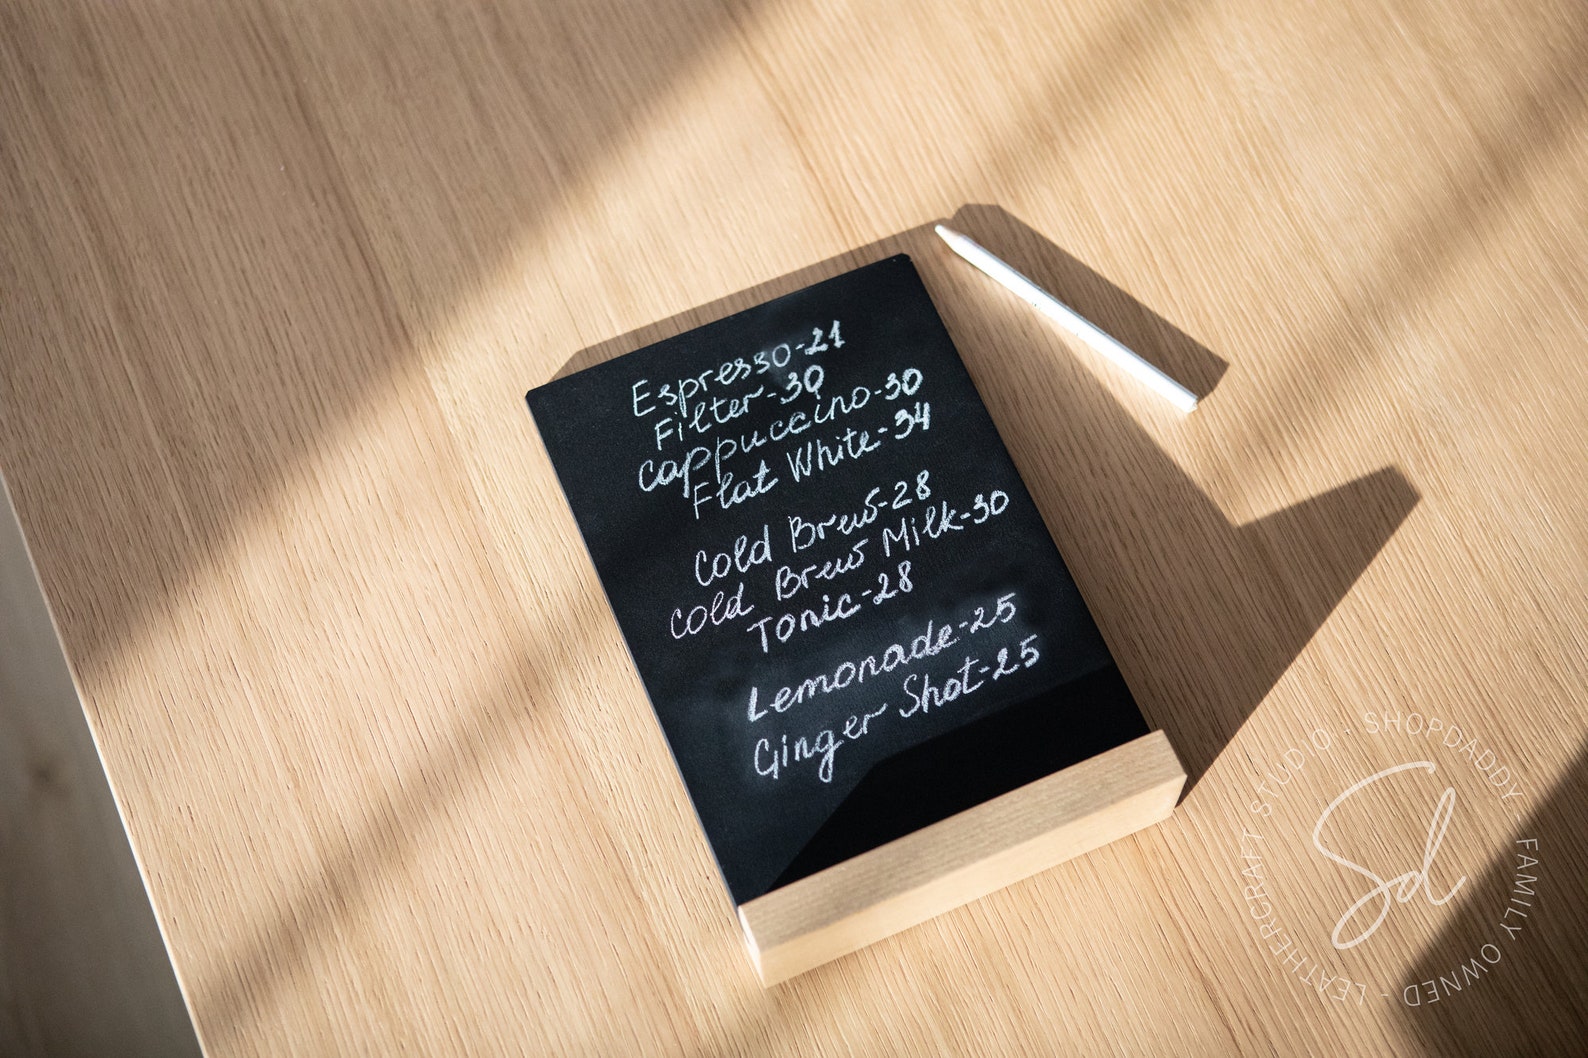 Espresso-21
Filter-30
Cappuccino-30
Flat White-34
Cold Brew-28
Cold Brew Milk-30
Tonic-28
Lemonade-25
Ginger Shot-25
LEATHERCRAFT STUDIO · SHOPDADDY
FAMILY OWNED -
Sd